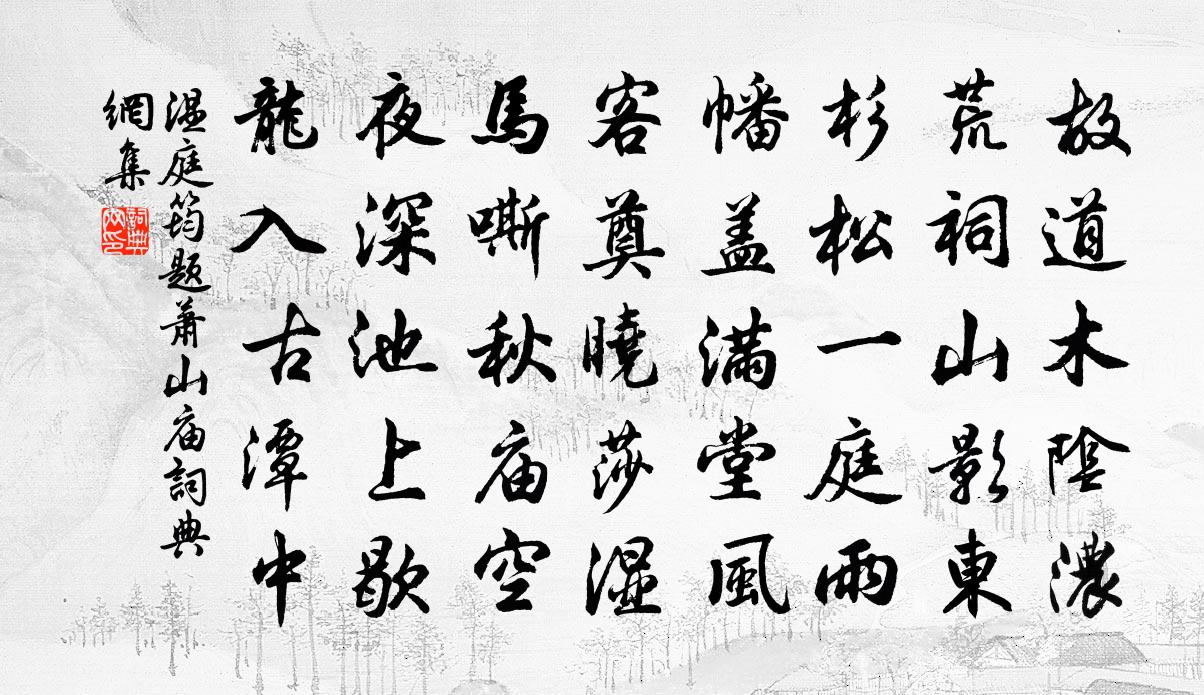 故道木陰濃
荒祠山影東
杉松一庭雨
幡蓋滿堂風
客奠曉莎濕
馬嘶秋庙空
夜深池上歇
龍入古潭中
温庭筠题蕭山庙詞典
網集
詞典網印